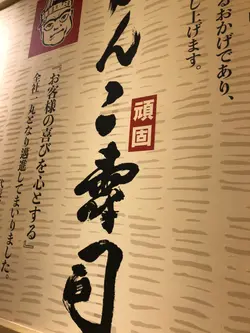 るおかげであり、
し上げます。
んこ寿司
頑固
『お客様の喜びを心とする』
全社一丸となり邁進してまいりました。